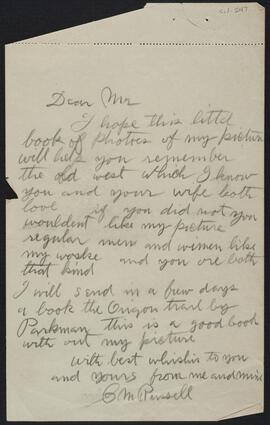 Dear Mr
I hope this little
book of photos of my picture
will help you remember
the old west which I know
you and your wife both
love if you did not you
wouldent like my picture
regular men and women like
my woske and you are both
that kind
I will send in a few days
a book the Oregon trail by
Parkman this is a good book
with out my picture
with best whishis to you
and yours from me and mine
C M Russell